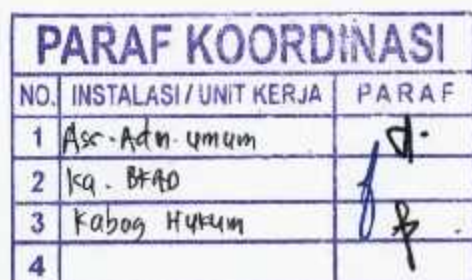 PARAF KOORDINASI
NO. INSTALASI / UNIT KERJA PARAF
1 Ass. Adm. umum
2 Ka. BKAD
3 Kabag Hukum
4